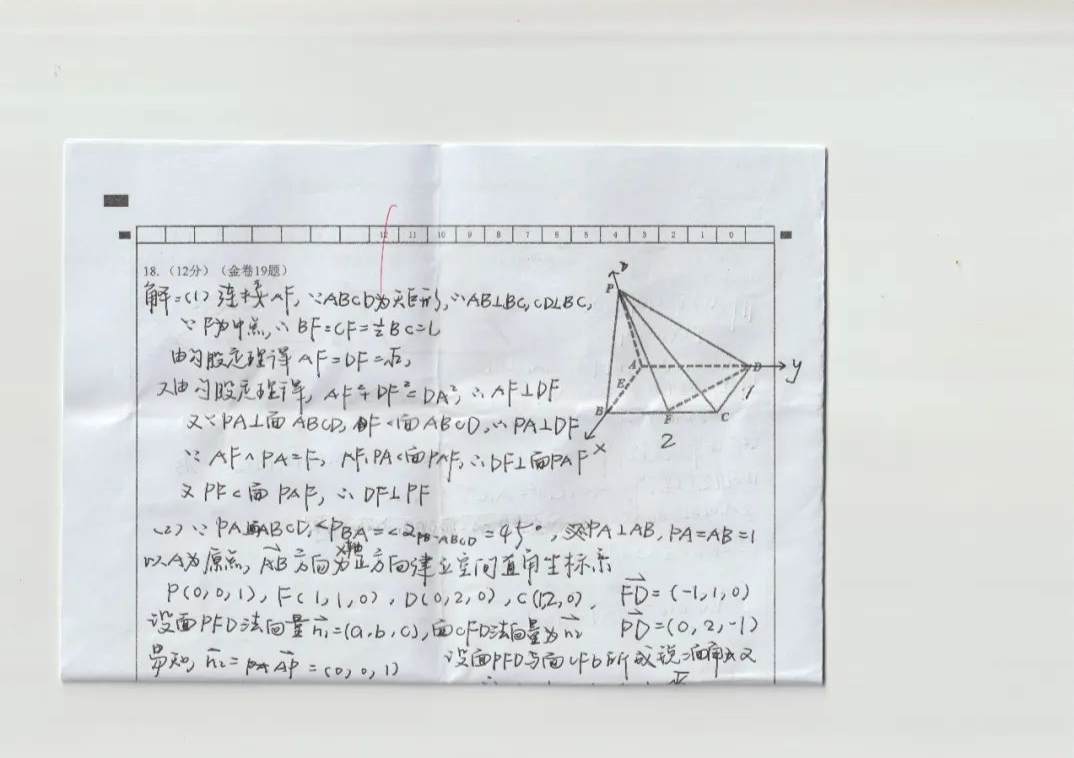 12 11 10 9 8 7 6 5 4 3 2 1 0
18.（12分）（金卷19题）
解:(1) 连接AF, ∵ABCD为矩形, ∴AB⊥BC, CD⊥BC,
∵F为中点, ∴BF=CF=½BC=1
由勾股定理得 AF=DF=√2,
又由勾股定理得, AF²+DF²=DA², ∴AF⊥DF
又∵PA⊥面ABCD, DF⊂面ABCD, ∴PA⊥DF
∵AF∩PA=F, AF,PA⊂面PAF, ∴DF⊥面PAF
又PF⊂面PAF, ∴DF⊥PF
(2) ∵PA⊥面ABCD, ∠PBA=∠α_{PB-ABCD}=45°, 又PA⊥AB, PA=AB=1
以A为原点, AB方向为x轴正方向建立空间直角坐标系
P(0,0,1), F(1,1,0), D(0,2,0), C(1,2,0), FD=(-1,1,0)
设面PFD法向量n₁=(a,b,c), 面CFD法向量为n₂ PD=(0,2,-1)
易知, n₂=AP=(0,0,1) 设面PFD与面CFD所成锐二面角为α
P
A
D
y
E
B
F
C
1
x
2